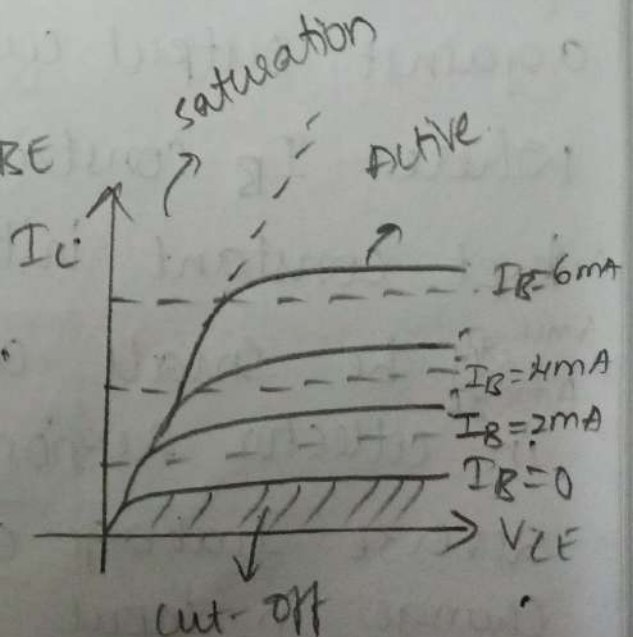 saturation
Active
BE
Ic
IB=6mA
IB=4mA
IB=2mA
IB=0
VCE
cut-off